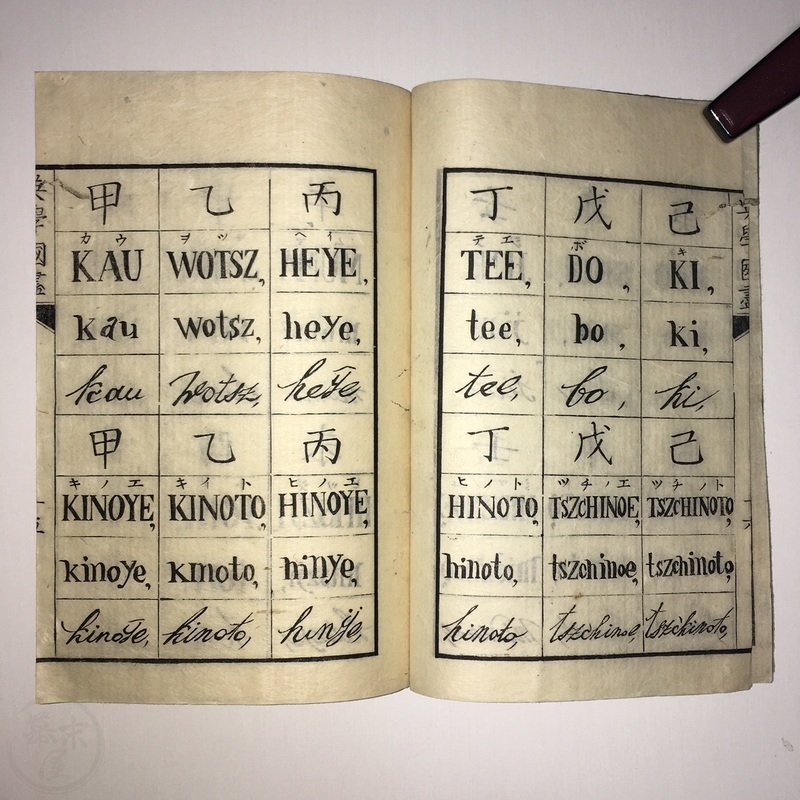 甲 乙 丙
カウ ヲツ ヘイ
KAU WOTSZ, HEYE,
kau wotsz, heye,
kau wotsz, heye,
甲 乙 丙
キノエ キイト ヒノエ
KINOYE, KINOTO, HINOYE,
kinoye, kinoto, hinye,
kinoye, kinoto, hinye,
丁 戊 己
テエ ボ キ
TEE, DO, KI,
tee, bo, ki,
tee, bo, ki,
丁 戊 己
ヒノト ツチノエ ツチノト
HINOTO, TSZCHINOE, TSZCHINOTO,
hinoto, tszchinoe, tszchinoto,
hinoto, tszchinoe, tszchinoto,